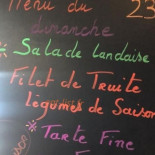 Menu du 23
dimanche
* Salade landaise
Filet de Truite
Légumes de Saison
* Tarte Fine